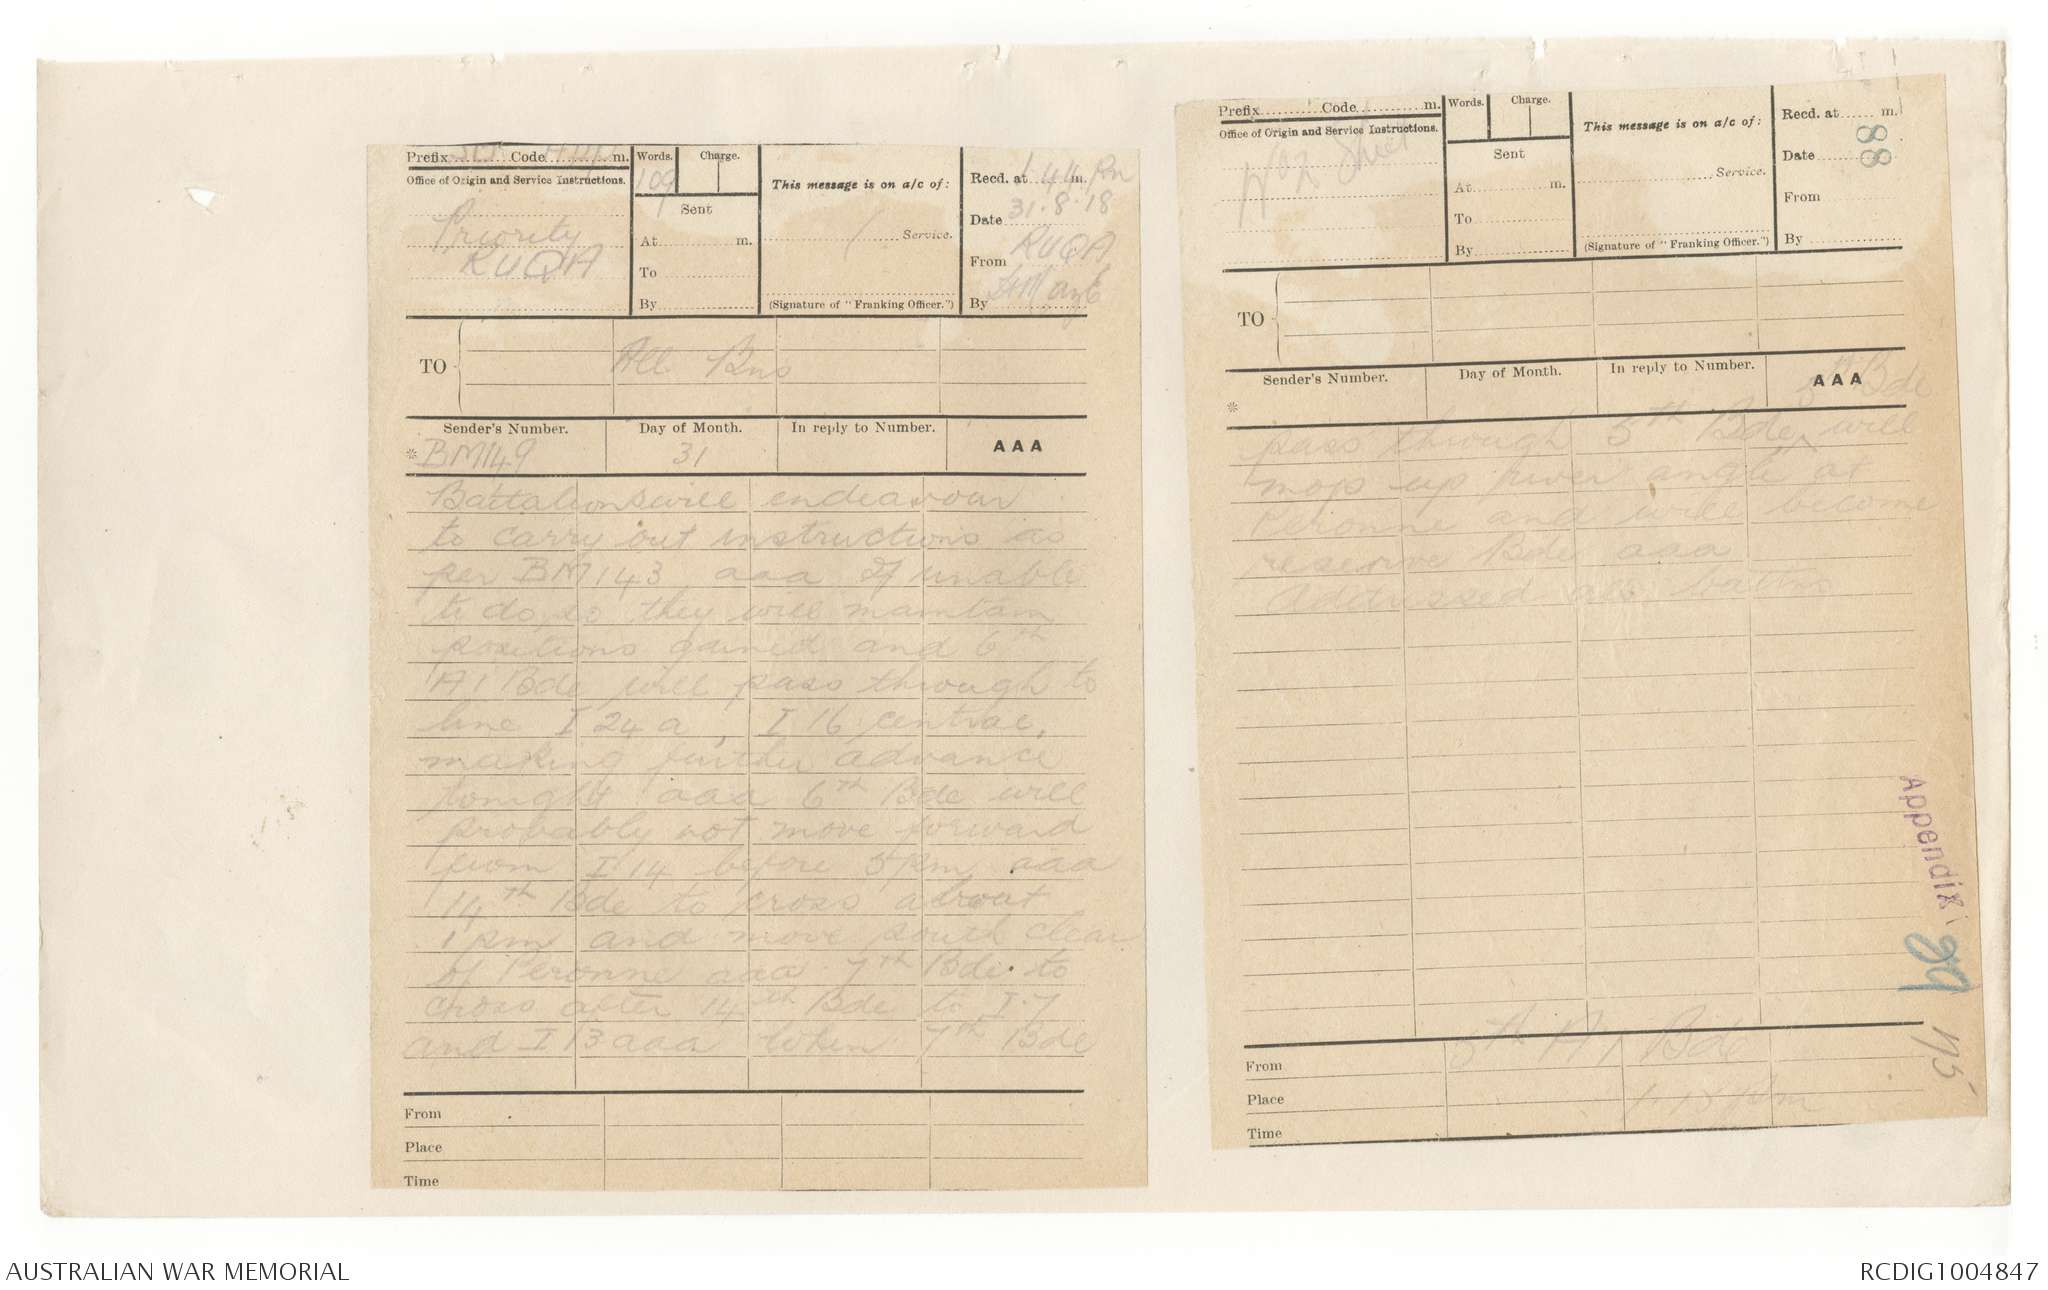 Prefix Code m.
Office of Origin and Service Instructions.
Priority
KUQA
Words.
109
Charge.
Sent
At m.
To
By
This message is on a/c of:
Service.
(Signature of "Franking Officer.")
Recd. at 1.44 pm m.
Date 31.8.18
From KUQA
By
TO
All Bns
Sender's Number.
Day of Month.
In reply to Number.
AAA
* BM149
31
Battalions will endeavour
to carry out instructions as
per BM143 aaa If unable
to do so they will maintain
positions gained and 6th
AI Bde will pass through to
line I 24 a, I 16 central,
making further advance
tonight aaa 6th Bde will
probably not move forward
from I 14 before 5 pm aaa
14th Bde to cross about
1 pm and move south clear
of Peronne aaa 7th Bde to
cross after 14th Bde to I.7
and I 13 aaa When 7th Bde
From
Place
Time
Prefix Code m.
Office of Origin and Service Instructions.
No 2 Sheet
Words.
Charge.
Sent
At m.
To
By
This message is on a/c of:
Service.
(Signature of "Franking Officer.")
Recd. at m.
Date
From
By
88
TO
Sender's Number.
Day of Month.
In reply to Number.
AAA
*
5th Bde
pass through 5th Bde, will
mop up river angle at
Peronne and will become
reserve Bde aaa
Addressed all battns
Appendix 29
From
5th AI Bde
Place
1.15 pm
Time
AUSTRALIAN WAR MEMORIAL
RCDIG1004847